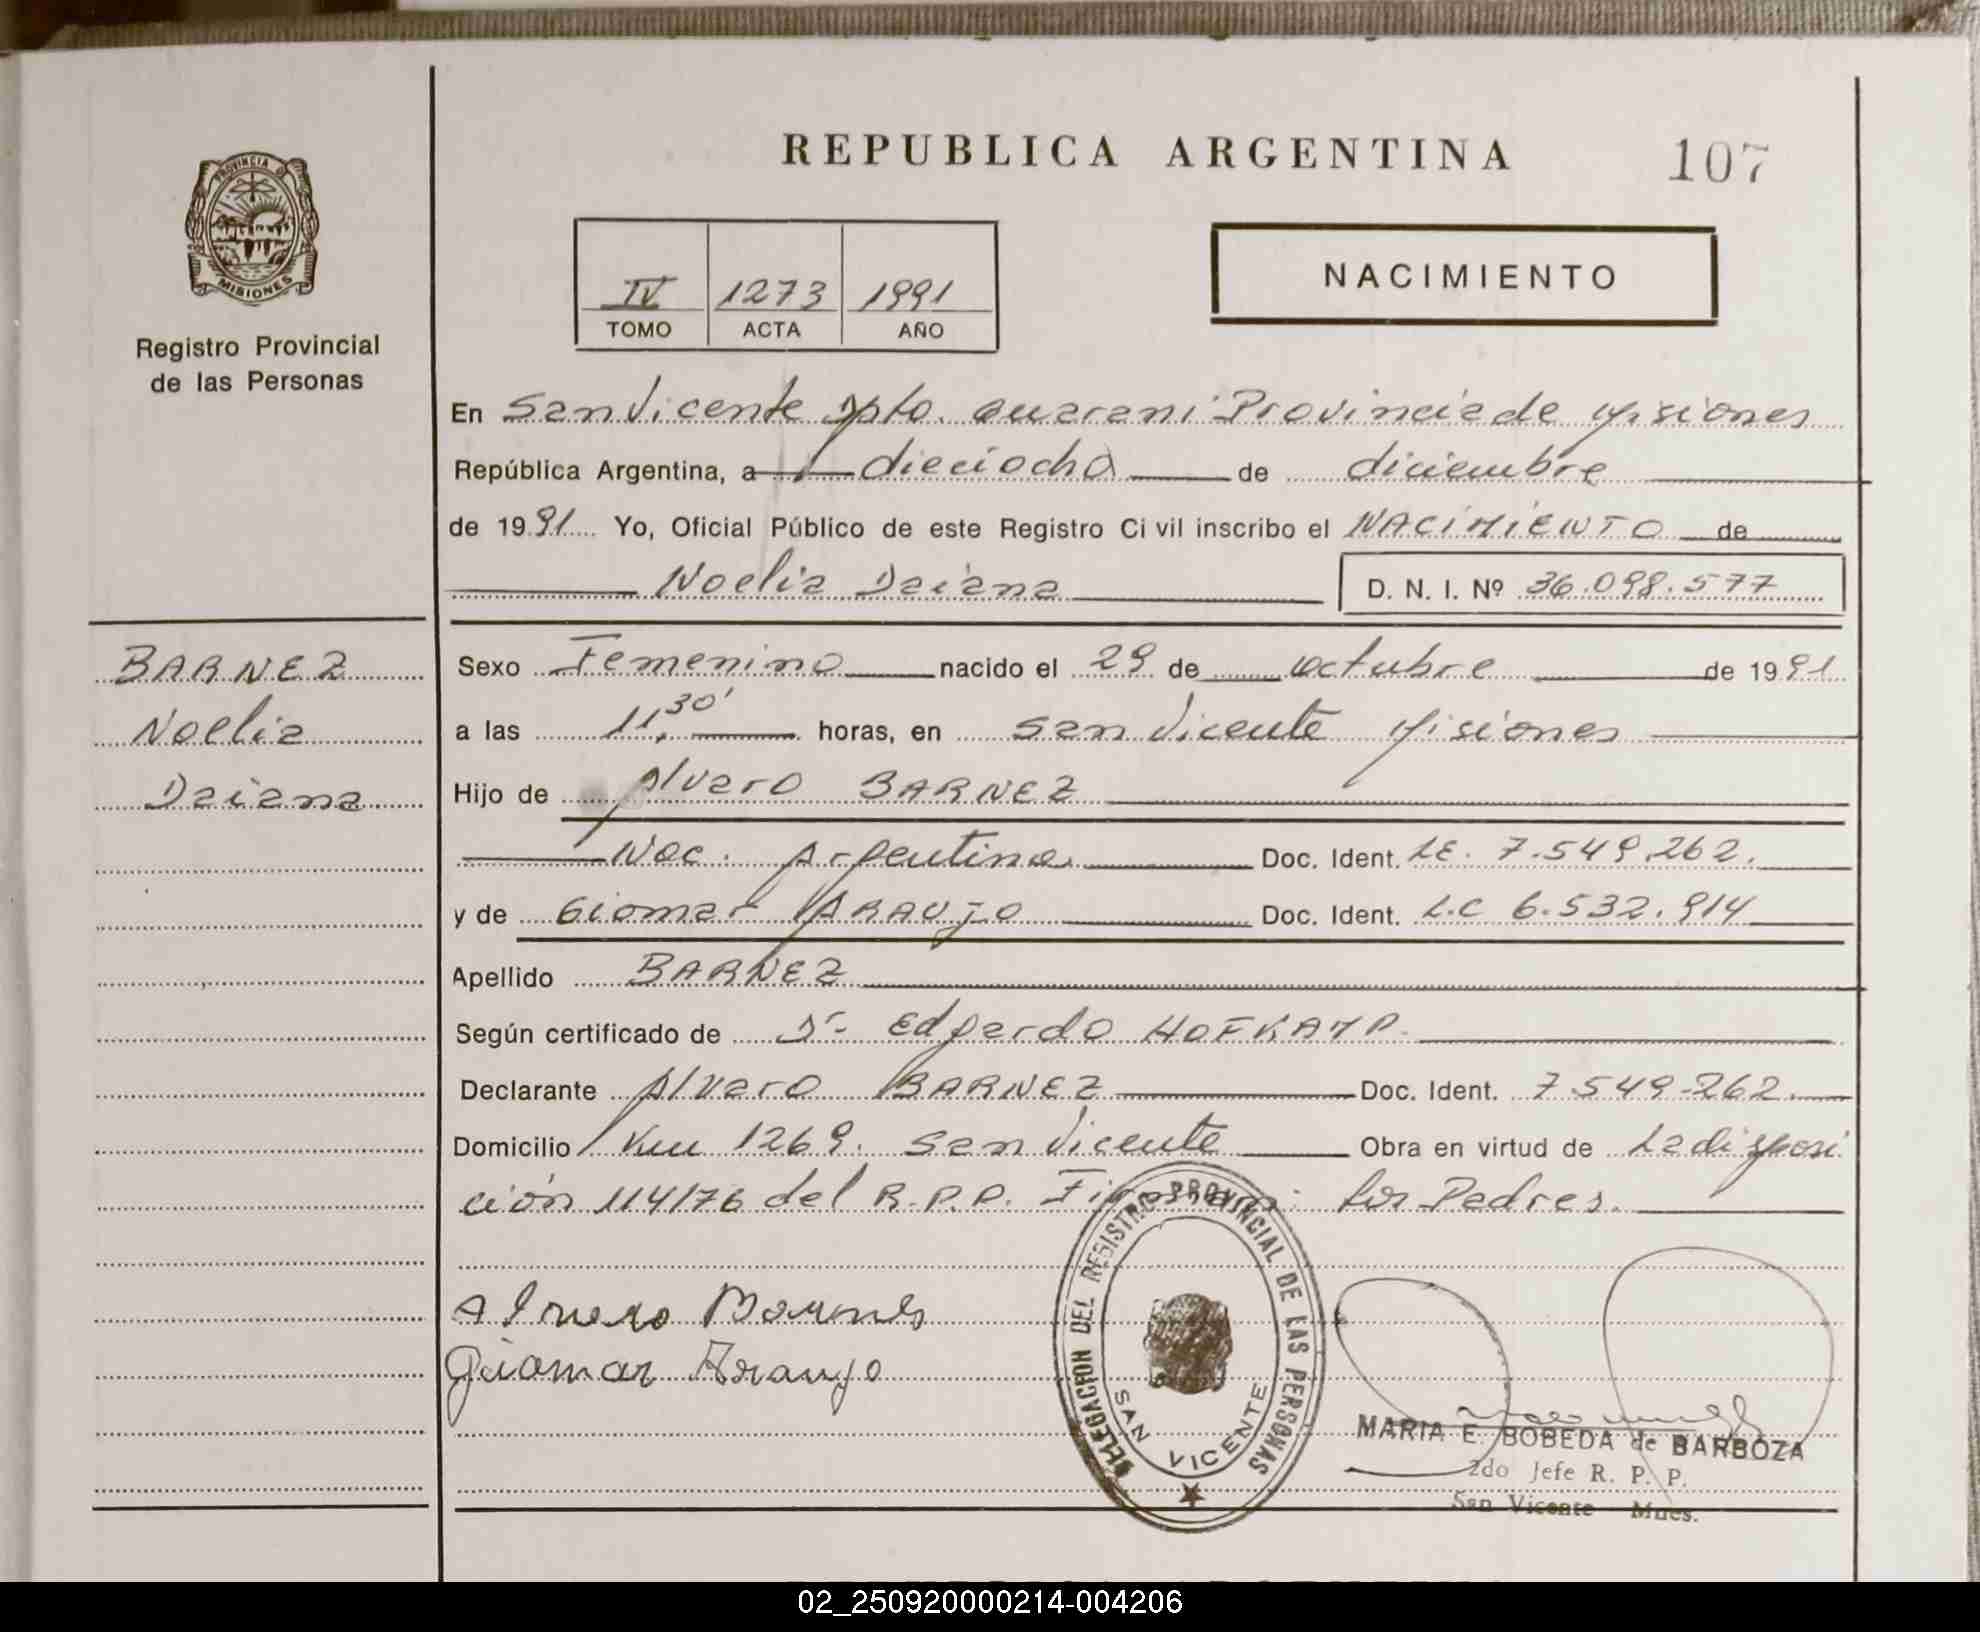 REPUBLICA ARGENTINA
107
PROVINCIA DE
MISIONES
Registro Provincial
de las Personas
IV 1273 1991
TOMO ACTA AÑO
NACIMIENTO
En San Vicente Dpto. Guarani Provincia de Misiones
República Argentina, a dieciocho de diciembre
de 1991 Yo, Oficial Público de este Registro Ci vil inscribo el NACIMIENTO de
Noelia Daiana D. N. I. Nº 36.098.577
BARNEZ
Noelia
Daiana
Sexo Femenino nacido el 29 de octubre de 1991
a las 11,30' horas, en San Vicente Misiones
Hijo de Alvaro BARNEZ
Nac. Argentina Doc. Ident. LE. 7.549.262.
y de Giomar ARAUJO Doc. Ident. L.C 6.532.914
Apellido BARNEZ
Según certificado de Dr. Edgardo HOFKAMP.
Declarante Alvaro BARNEZ Doc. Ident. 7.549.262.
Domicilio Km 1269. San Vicente Obra en virtud de La disposi
ción 114/76 del R.P.P. Firman: los Padres.
Alvaro Barnes
Giomar Araujo
DELEGACION DEL REGISTRO PROVINCIAL DE LAS PERSONAS
SAN VICENTE
MARIA E. BOBEDA de BARBOZA
2do Jefe R. P. P.
San Vicente Mnes.
02_250920000214-004206